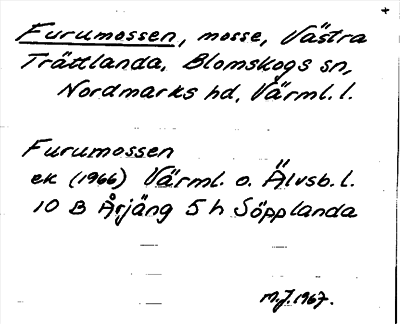 Furumossen, mosse, Västra
Trättlanda, Blomskogs sn,
Nordmarks hd, Värml. l.
Furumossen
ek (1966) Värml. o. Älvsb. l.
10 B Årjäng 5 h Söpplanda
M.J. 1967.